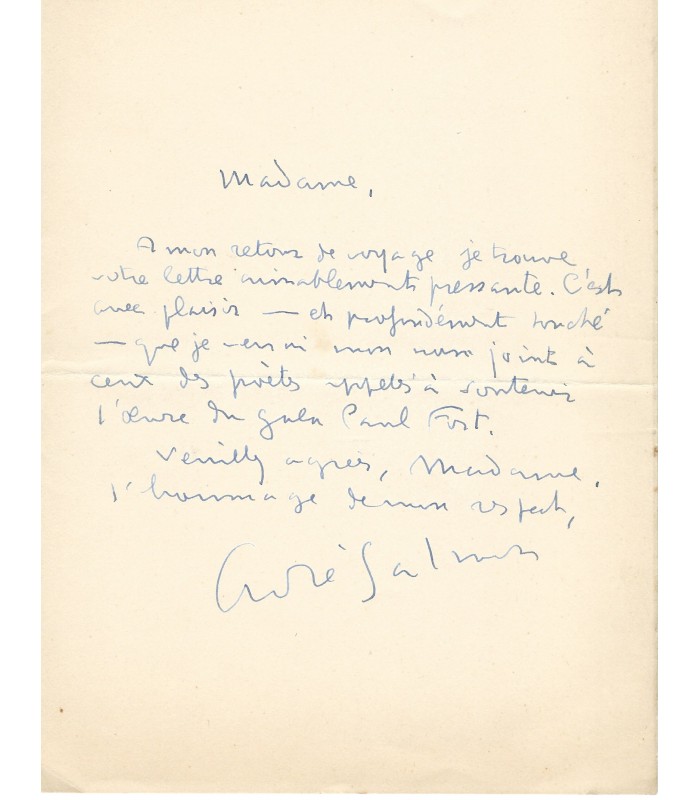 Madame,
A mon retour de voyage je trouve
votre lettre aimablement pressante. C'est
avec plaisir — et profondément touché
— que je verrai mon nom joint à
ceux des poètes appelés à soutenir
l'œuvre du gala Paul Fort.
Veuillez agréer, Madame,
l'hommage de mon respect,
André Salmon